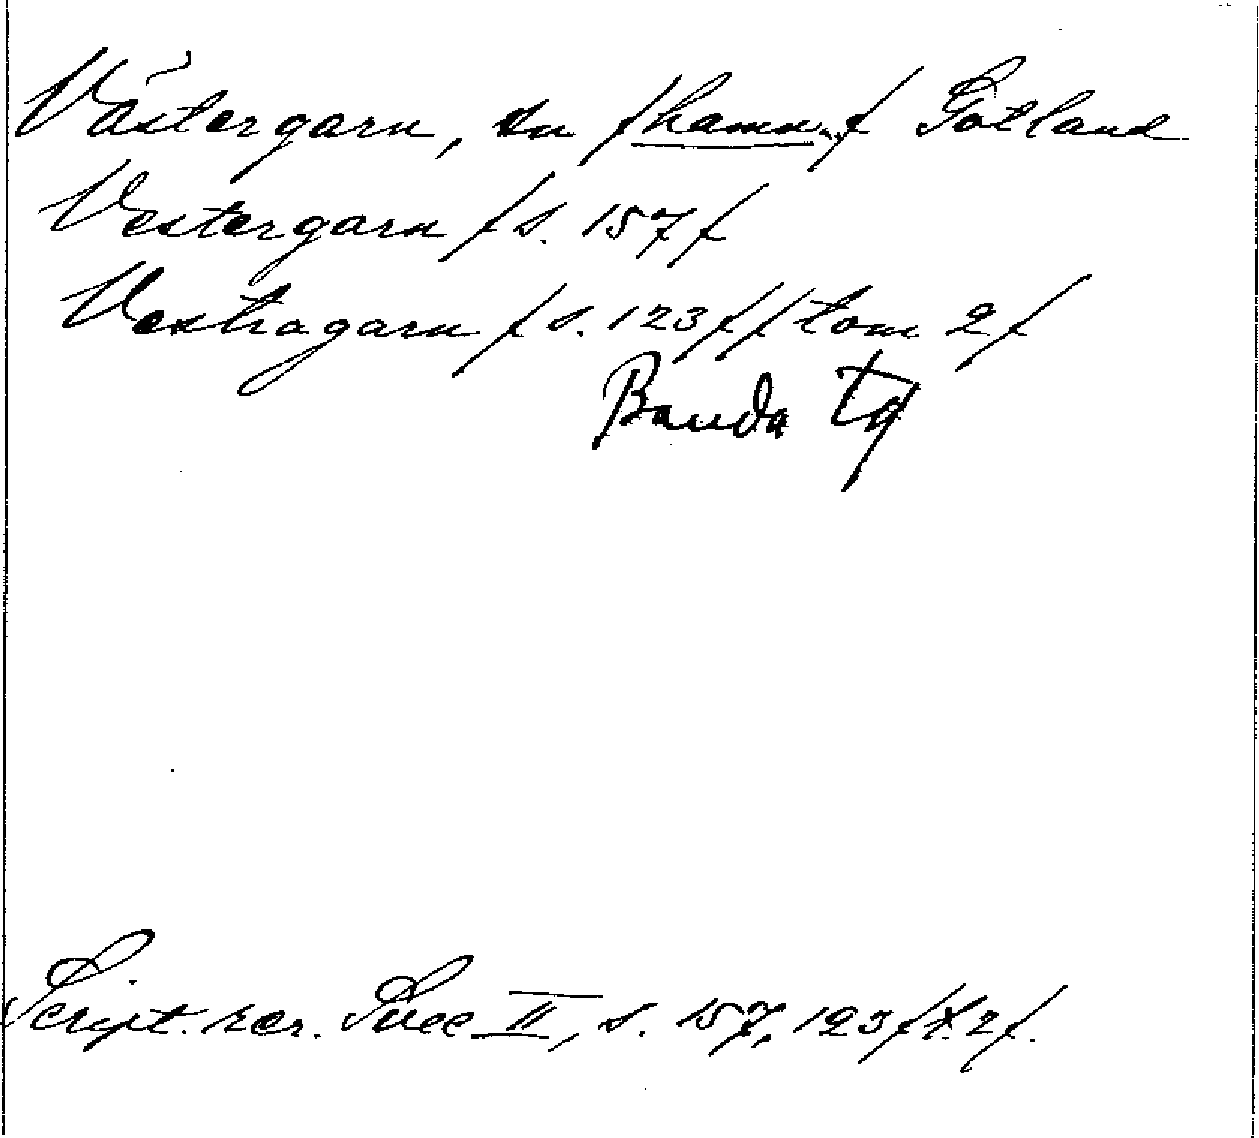 Västergarn, sn /hamn./ Gotland
Vestergarn /s. 157/
Vestragarn /s. 123/ /tom 2/
Banda tg
Script. rer. Svec II, s. 157, 123/t. 2/.